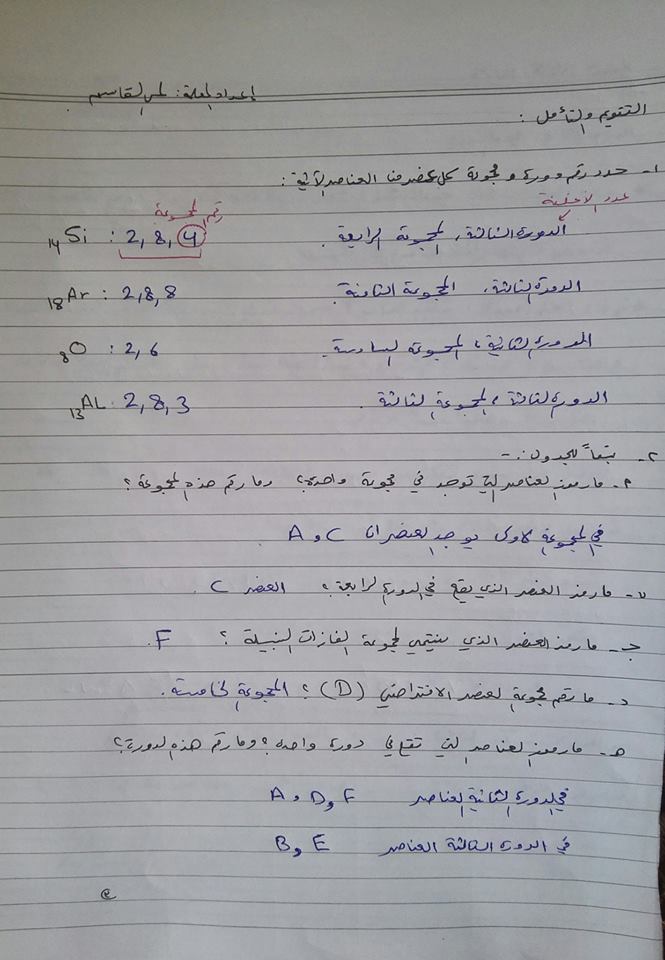 إعداد المعلمة: لمى القاسم
التقويم والتأمل :
١- حدد رقم دورة و مجموعة كل عنصر من العناصر الآتية :
عدد الأغلفة
رقم المجموعة
14Si : 2, 8, 4 الدورة الثالثة، المجموعة الرابعة.
18Ar : 2, 8, 8 الدورة الثالثة، المجموعة الثامنة.
8O : 2, 6 الدورة الثانية، المجموعة السادسة.
13AL : 2, 8, 3 الدورة الثالثة، المجموعة الثالثة.
٢- تبعاً للجدول :-
أ- ما رموز العناصر التي توجد في مجموعة واحدة؟ وما رقم هذه المجموعة؟
في المجموعة الأولى يوجد العنصران A و C
ب- ما رمز العنصر الذي يقع في الدورة الرابعة؟ العنصر C
جـ- ما رمز العنصر الذي ينتمي لمجموعة الغازات النبيلة؟ F.
د- ما رقم مجموعة العنصر الافتراضي (D)؟ المجموعة الخامسة.
هـ- ما رموز العناصر التي تقع في دورة واحدة؟ وما رقم هذه الدورة؟
في الدورة الثانية العناصر A و D و F
في الدورة الثالثة العناصر B و E